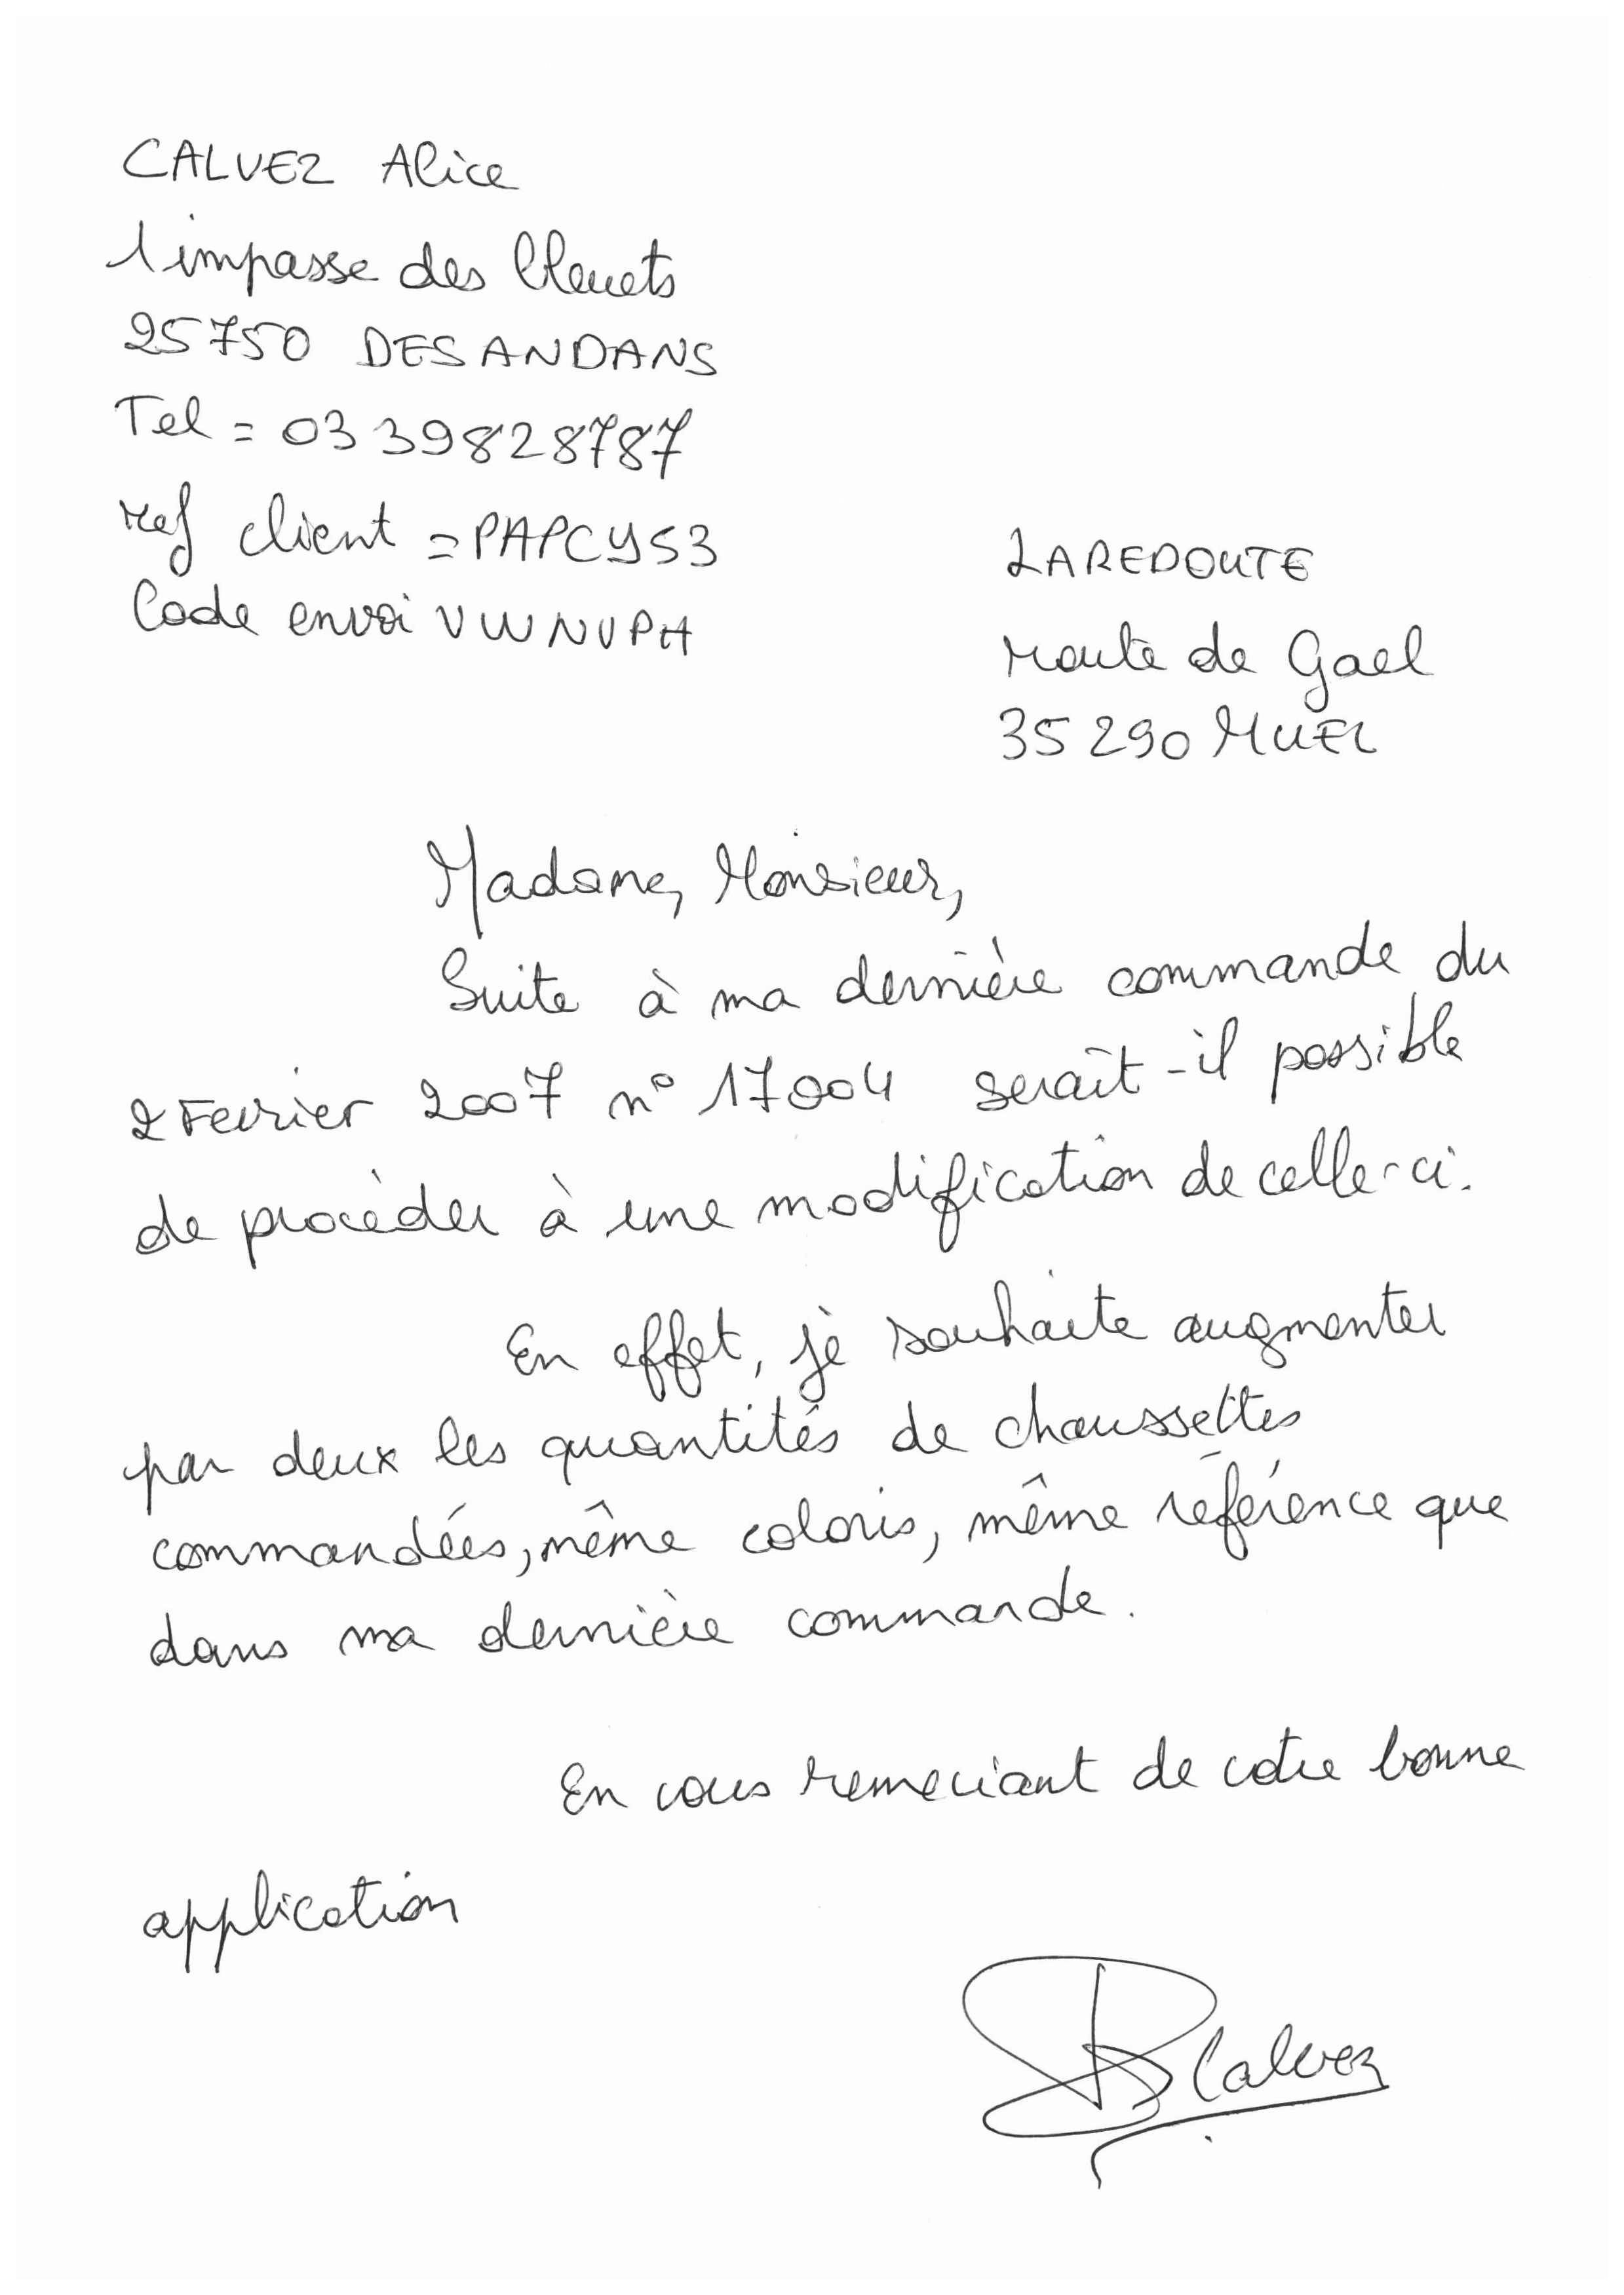 CALVEZ Alice
1 impasse des bleuets
25750 DESANDANS
Tel = 03 39828787
ref client = PAPCY53
Code envoi VWNVPH
LAREDOUTE
route de Gael
35290 MUEL
Madame, Monsieur,
Suite à ma dernière commande du
2 Fevrier 2007 n° 17004 serait-il possible
de procèder à une modification de celle-ci.
En effet, je souhaite augmenter
par deux les quantités de chaussettes
commandées, même coloris, même référence que
dans ma dernière commande.
En vous remerciant de votre bonne
application
Calvez